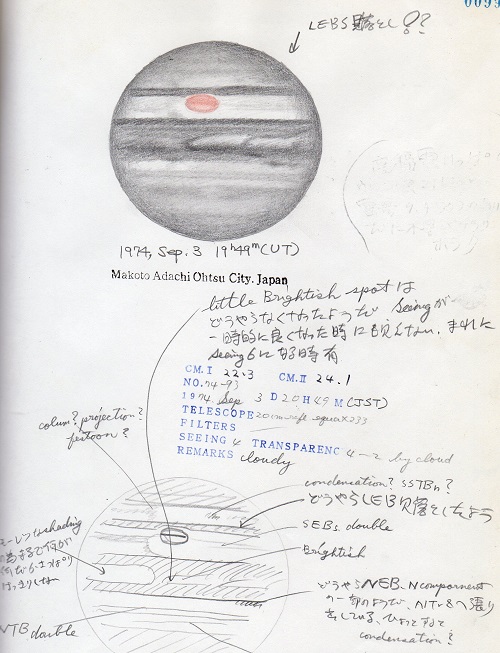 0099
LEBS
1974, Sep. 3 19h49m(UT)
Makoto Adachi Ohtsu City. Japan
little Brightish spot は
どうやらなくなったようだ seeingが
一時的に良くなった時にも見えない. まれに
seeing 6になる時有
CM.I 22.3 CM.II 24.1
NO.74-93
1974 Sep 3 D 20H49M(JST)
TELESCOPE 20cm refl equa×233
FILTERS
SEEING 4 TRANSPARENC 4-2 by cloud
REMARKS cloudy
colum? projection?
festoon?
condensation? SSTBn?
どうやらLEB欠落としたよう
SEBs double
Brightish
shading
はっきりしない
どうやらNEB. Ncompornent
の一部のようだ、NTrSへ張り
出している、ひょっとすると
condensation?
NTB double